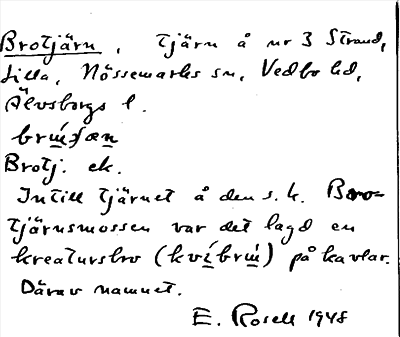 Brotjärn, tjärn å nr 3 Strand,
Lilla, Nössemarks sn, Vedbo hd,
Älvsborgs l.
Brotj. ek.
Intill tjärnet å den s. k. Bro-
tjärnsmossen var det lagd en
kreatursbro (kvíbrú) på kavlar.
Därav namnet.
E. Rosell 1948